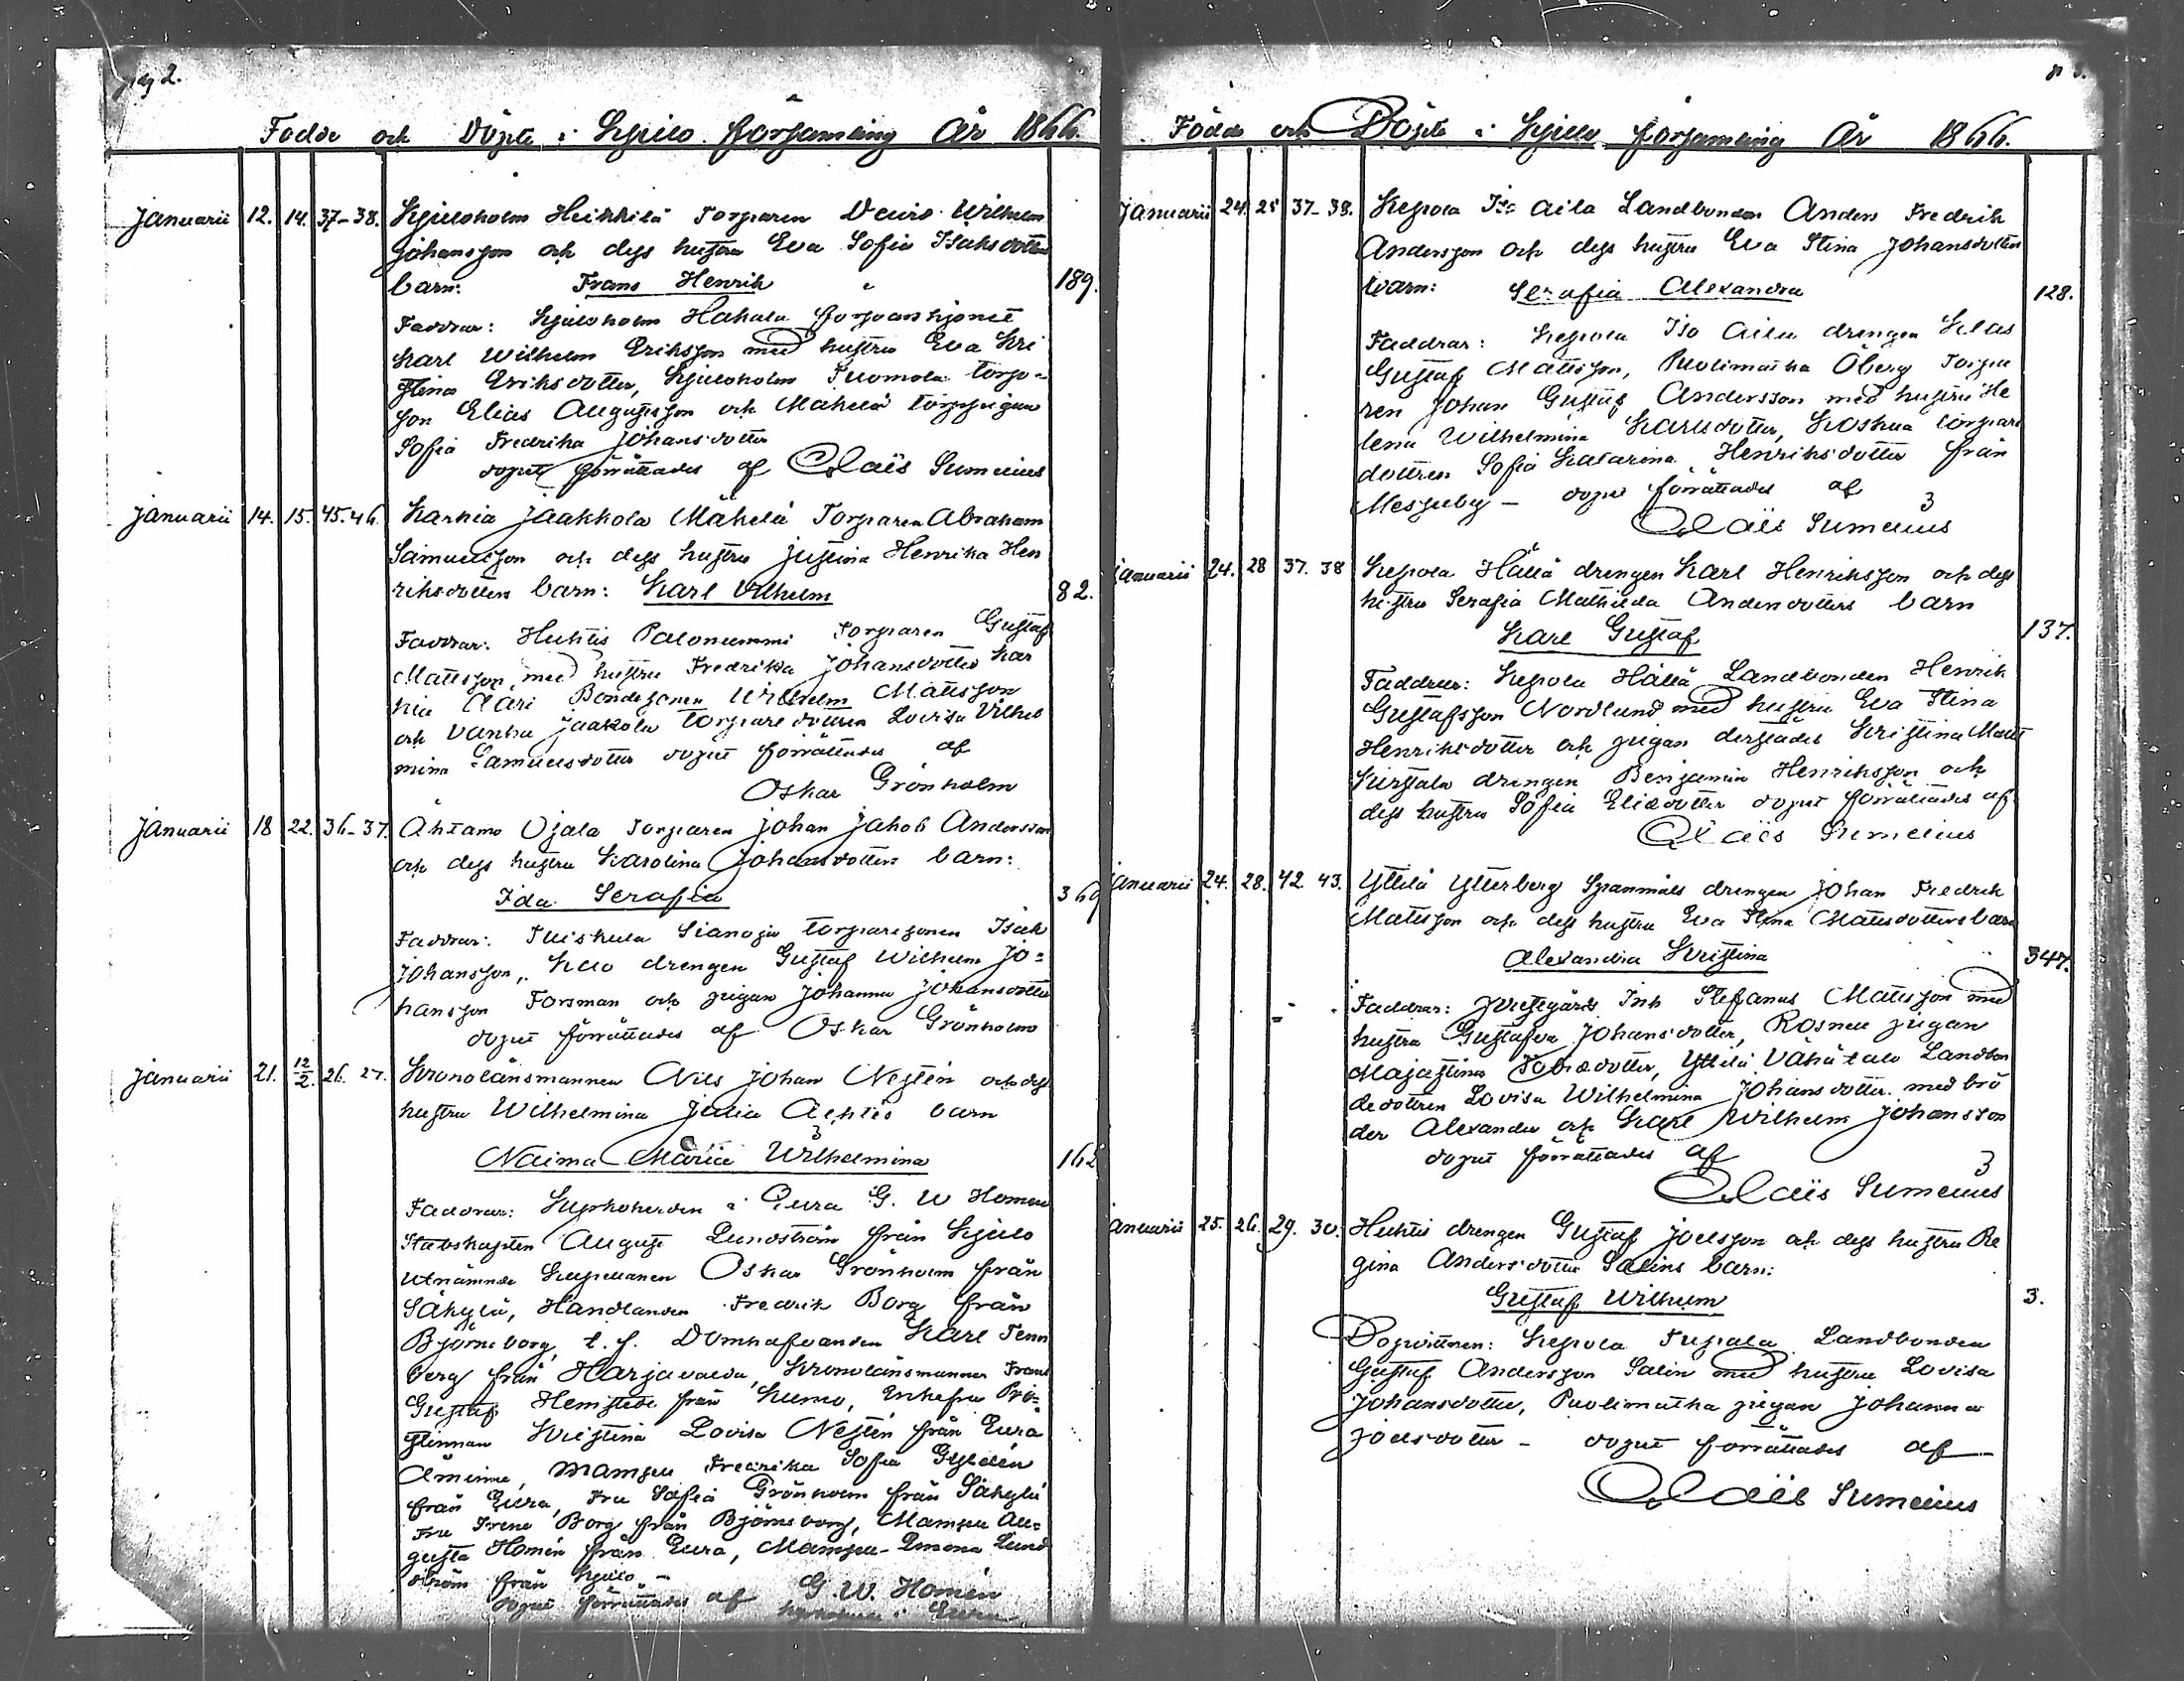 pag 2.
Födde och Döpte i Kjulo församling År 1866.
Januarii 12. 14. 37-38. Kjuloholm Heikkilä Torparen David Wilhelm
Johansson och dess hustru Eva Sofia Isaksdotters
barn: Frans Henrik 189.
Faddrar: Kjuloholm Hakala
Karl Wilhelm Eriksson med hustru Eva Kri
stina Eriksdotter, Kjuloholm Tuomola torpa-
son Elias Augustsson och Mäkelä torppigan
Sofia Fredrika Johansdotter
dopet förrättades af Claës Sumelius
Januarii 14. 15. 45.46. Karhia Jaakkola Mäkelä Torparen Abraham
Samuelsson och dess hustru Justina Henrika Hen
riksdotters barn: Karl Vilhelm 82.
Faddrar: Huhtis Palonummi Torparen Gustaf
Mattsson med hustru Fredrika Johansdotter Kar
hia Äari Bondesonen Wilhelm Mattsson
och Vanha Jaakola torpare dottren Lovisa Vilhel
mina Samuelsdotter dopet förrättades af
Oskar Grönholm
Januarii 18 22. 36-37. Ahtamo Ojala Torparen Johan Jakob Andersson
och dess hustru Karolina Johansdotters barn:
Ida Serafia 369
Faddrar: Tuiskula Sianoja torparesonen Isak
Johansson, Kulo drengen Gustaf Wilhelm Jo=
hansson Forsman och pigan Johanna Johansdotter
dopet förrättades af Oskar Grönholm
Januarii 21. 12/2. 26. 27. Kronolänsmannen Nils Johan Nestén och dess
hustru Wilhelmina Julia Achtés barn
Naima Maria Wilhelmina 162
Faddrar: Kyrkoherden i Eura G. W Homén
Stabskapten August Lundström från Kjulo
utnämnde Kapellanen Oskar Grönholm från
Säkylä, Handlanden Fredrik Borg från
Björneborg, t. f. Domhafvanden Karl Tenn
berg från Harjavalda, Kronolänsmannen Frans
Gustaf Hemstedt från Kumo, Enkefru Pro=
stinnan Kristina Lovisa Nestén från Eura
Åminne, Mamsell Fredrika Sofia Gyldén
från Eura, Fru Sofia Grönholm från Säkylä
Fru Irene Borg från Björneborg, Mamsell Au=
gusta Homén från Eura, Mamsell Emma Lund
ström från Kjulo -
dopet förrättades af G. W. Homén
kyrkoherde i Eura
Födde och Döpte i Kjulo församling År 1866.
Januarii 24. 25 37-38. Kepola Iso Aila Landbonden Anders Fredrik
Andersson och dess hustru Eva Stina Johansdotters
barn: Serafia Alexandra 128.
Faddrar: Kepola Iso Aila drengen Klas
Gustaf Mattsson, Puolimatka Öberg Torpa
ren Johan Gustaf Andersson med hustru He
lena Wilhelmina Karlsdotter, Koskua torpare
dottren Sofia Katarina Henriksdotter från
Messuby - dopet förrättades af
Claës Sumelius
Januarii 24. 28 37. 38 Kepola Hällä drengen Karl Henriksson och dess
hustru Serafia Mathilda Andersdotters barn
Karl Gustaf 137.
Faddrar: Kepola Hällä Landbonden Henrik
Gustafsson Nordlund med hustru Eva Stina
Henriksdotter och pigan derstädes Kristina Matts
drengen Benjamin Henriksson och
dess hustru Sofia Eliedotter dopet förrättades af
Claës Sumelius
Januarii 24. 28. 42. 43. Yttilä Ytterberg Spannmåls drengen Johan Fredrik
Mattsson och dess hustru Eva Stina Mattsdotters barn
Alexandra Kristina 347.
Faddrar: Prestegårds Inh Stefanus Mattsson med
hustru Gustafva Johansdotter, Rosnell pigan
Majastina Tobiedotter, Yttilä Vähätalo Landbon
dedottren Lovisa Wilhelmina Johansdotter med brö
der Alexander och Karl Wilhelm Johansson
dopet förrättades af
Claës Sumelius
Januarii 25. 26. 29. 30. Huhtis drengen Gustaf Joelsson och dess hustru Re
gina Andersdotter Salins barn:
Gustaf Wilhelm 3.
Dopvittnen: Kepola Tupala Landbonden
Gustaf Andersson Salin med hustru Lovisa
Johansdotter, Puolimatka pigan Johanna
Joelsdotter - dopet förrättades af
Claës Sumelius